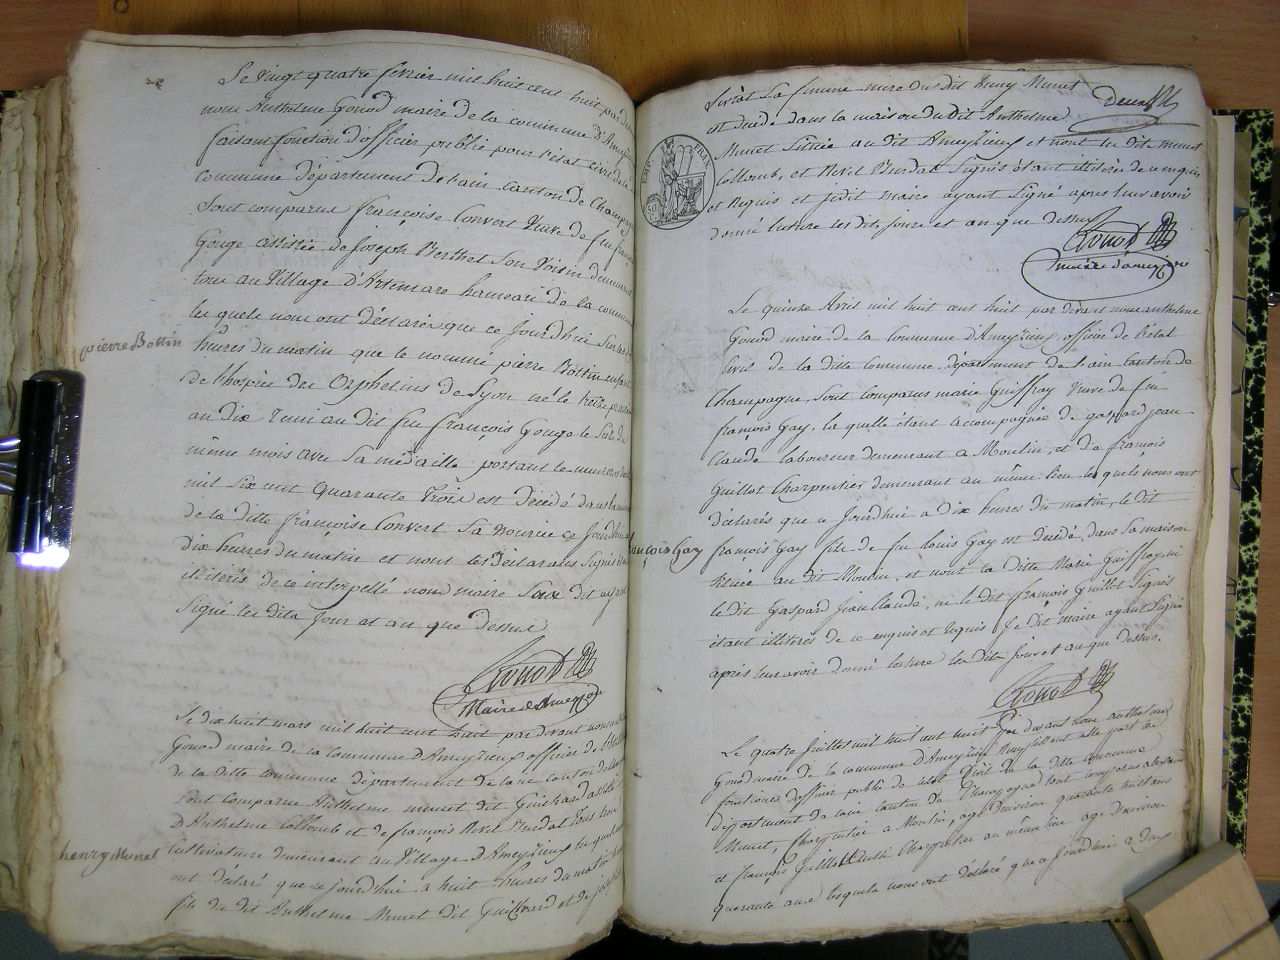 Le vingt quatre fevrier mil huit cent huit par devant
nous Anthelme Gonod maire de la commune d'Ameyzieu
faisant fonction d'officier public pour l'état civil de la
commune département de l'ain canton de Champagne
Sont comparus françoise Convert Veuve de feu françois
Gouge assistée de Joseph Berthet Son Voisin demeurant
tous au Village d'Artemare hameau de la commune
les quels nous ont déclarés que ce Jourdhui
pierre Bottin
heures du matin que le nommé pierre Bottin enfant
de l'hospice des Orphelins de Lyon né le
an dix remi au dit feu françois Gouge le
même mois avec Sa médaille portant le numero
mil six cent quarante trois est décédé dans la maison
de la ditte françoise Convert Sa nourrice ce Jourdhui
dix heures du matin et nont les déclarans Signés
illitérés de ce interpellé nous maire
Signé les dits Jour et an que dessus
Gonod
Maire d'Ameyzieu
Le dix huit mars mil huit cent huit par devant nous
Gonod maire de la commune d'Ameyzieu officier de l'état
de la ditte commune département de l'ain canton de
sont comparus Anthelme munet dit Guichard assisté
d'Anthelme Collomb et de françois Revil Burdat tous trois
henry Munet
Cultivateurs demeurant au Village d'Ameyzieu les quels
ont déclaré que ce jourdhui a huit heures du matin
fils de dit Anthelme Munet dit Guichard et de
la femme mere du dit henry Munet
est décédé dans la maison du dit Anthelme
EMP. FRAN.
Munet Sittuée au dit Ameyzieu et nont les dits munet
Collomb, et Revil Burdat Signés étant illitérés de ce enquis
et Requis et Jedit maire ayant Signé apres leur avoir
donné lecture les dits jour et an que dessus
Gonod
maire d'ameyzieu
Le quinze Avril mil huit cent huit par devant nous anthelme
Gonod maire de la commune d'Ameyzieu, officier de l'état
Civil de la ditte commune, département de l'ain canton de
Champagne, Sont comparus marie Guiffray Veuve de feu
françois Gay, la quelle étant accompagnée de gaspard jean
Claude laboureur demeurant a Moulin, et de françois
Guillot Charpentier demeurant au même lieu les quels nous ont
déclarés que ce Jourdhui a dix heures du matin, le dit
françois Gay
françois Gay fils de feu louis Gay est décédé, dans sa maison
Sittuée au dit Moulin, et nont la ditte Marie Guiffray ni
le dit Gaspard Jean Claude, ni le dit françois Guillot Signés
étant illitérés de ce enquis et requis Je dit maire ayant Signé
après leur avoir donné lecture les dits jour et an que dessus.
Gonod
Le quatre Juillet mil huit cent huit par devant nous anthelme
Gonod maire de la commune d'Ameyzieu
fonctions d'officier public de l'état Civil de la ditte commune
département de l'ain canton de Champagne sont comparus
Munet, Charpentier a Moulin, age d'environ quarante huit ans
et françois Guillot aussi Charpentier au même lieu age d'environ
quarante ans lesquels nous ont déclaré que ce Jourdhui a deux